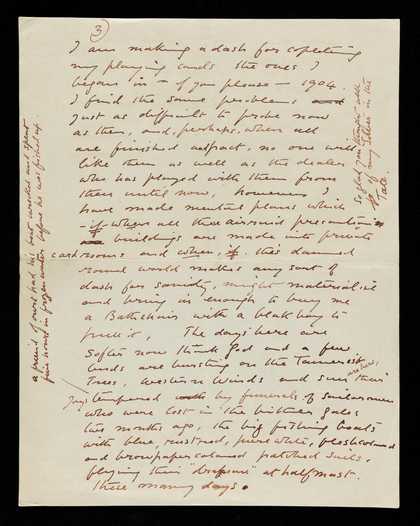 3
I am making a dash for completing
my playing cards the ones I
began in - if you please - 1904.
I find the same problems
just as difficult to probe now
as then, and, perhaps, when all
are finished, no one will
like them as well as the dealer
who has played with them from
then until now, however I
have made mental plans which
- if when all the air raid
buildings are made into private
card rooms and when, if, this damned
round world makes any sort of
dash for sanity, might materialise
and bring in enough to buy me
a Bathchair with a black boy to
The days here are
softer now thank God and a few
buds are bursting on the
trees, western winds and sun are here,
Joys tempered by funerals of
who were lost in the bitter gales
two months ago, the big fishing boats
with blue, mustard, pure white, fleshcoloured
and brownpaper coloured patched sails,
flying their at half mast.
these many days.
So glad you
of my in the
Tate.
a friend of ours had his boat wrecked and spent
five hours in frozen water before he was fished up.